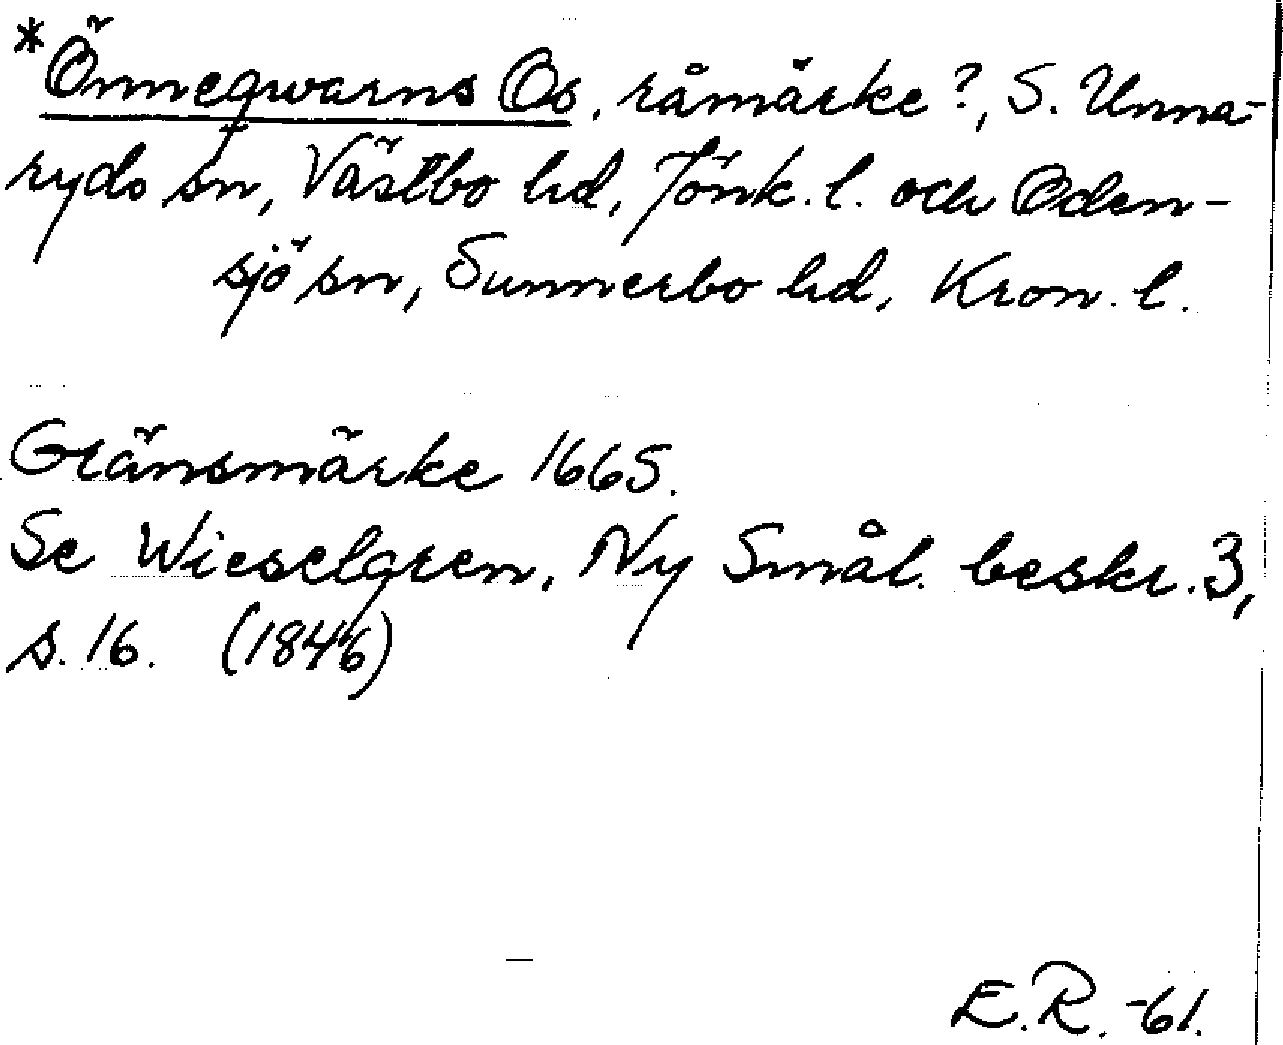 *Önneqwarns Os, råmärke?, S. Unna-
ryds sn, Västbo hd, Jönk. l. och Oden-
sjö sn, Sunnerbo hd, Kron. l.
Gränsmärke 1665.
Se Wieselgren, Ny Smål. beskr. 3,
s. 16. (1846)
E.R. -61.